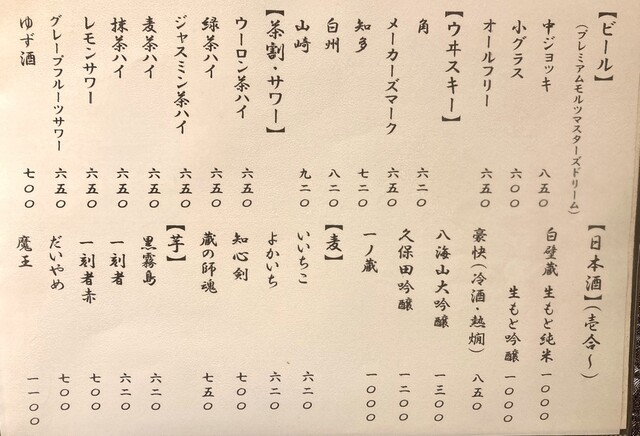 【ビール】
(プレミアムモルツマスターズドリーム)
中ジョッキ 八五〇
小グラス 六〇〇
オールフリー 六五〇
【ウヰスキー】
角 六二〇
メーカーズマーク 六五〇
知多 七二〇
白州 八二〇
山崎 九二〇
【茶割・サワー】
ウーロン茶ハイ 六五〇
緑茶ハイ 六五〇
ジャスミン茶ハイ 六五〇
麦茶ハイ 六五〇
抹茶ハイ 六五〇
レモンサワー 六五〇
グレープフルーツサワー 六五〇
ゆず酒 七〇〇
【日本酒】(壱合〜)
白壁蔵 生もと純米 一〇〇〇
生もと吟醸 一〇〇〇
豪快(冷酒・熱燗) 八五〇
八海山大吟醸 一三〇〇
久保田吟醸 一二〇〇
一ノ蔵 一〇〇〇
【麦】
いいちこ 六二〇
よかいち 六二〇
知心剣 七〇〇
蔵の師魂 七五〇
【芋】
黒霧島 六二〇
一刻者 六二〇
一刻者赤 七〇〇
だいやめ 七〇〇
魔王 一一〇〇